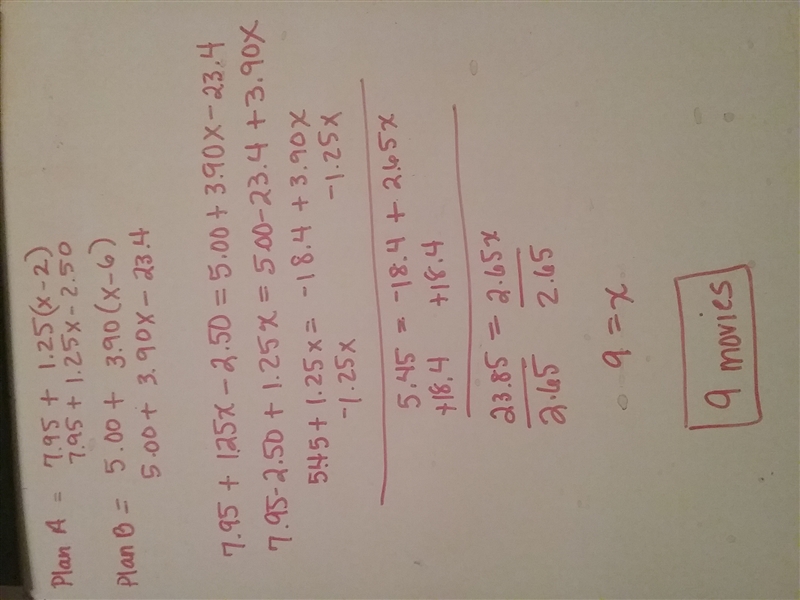 Plan A = 7.95 + 1.25(x-2)
7.95 + 1.25x - 2.50
Plan B = 5.00 + 3.90(x-6)
5.00 + 3.90x - 23.4
7.95 + 1.25x - 2.50 = 5.00 + 3.90x - 23.4
7.95 - 2.50 + 1.25x = 5.00 - 23.4 + 3.90x
5.45 + 1.25x = -18.4 + 3.90x
-1.25x -1.25x
5.45 = -18.4 + 2.65x
+18.4 +18.4
23.85 = 2.65x
2.65 2.65
9 = x
9 movies